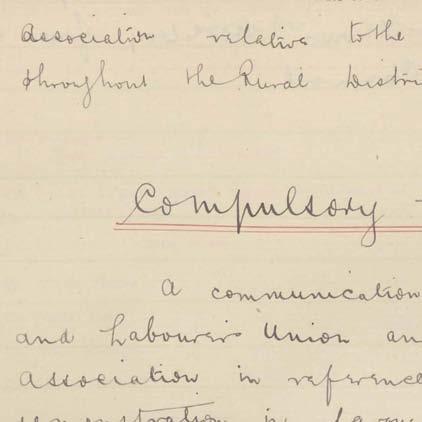 Association relative to the
throughout the Rural Distri
Compulsory
A communication
and Labourers Union an
Association in reference
demonstration in favou